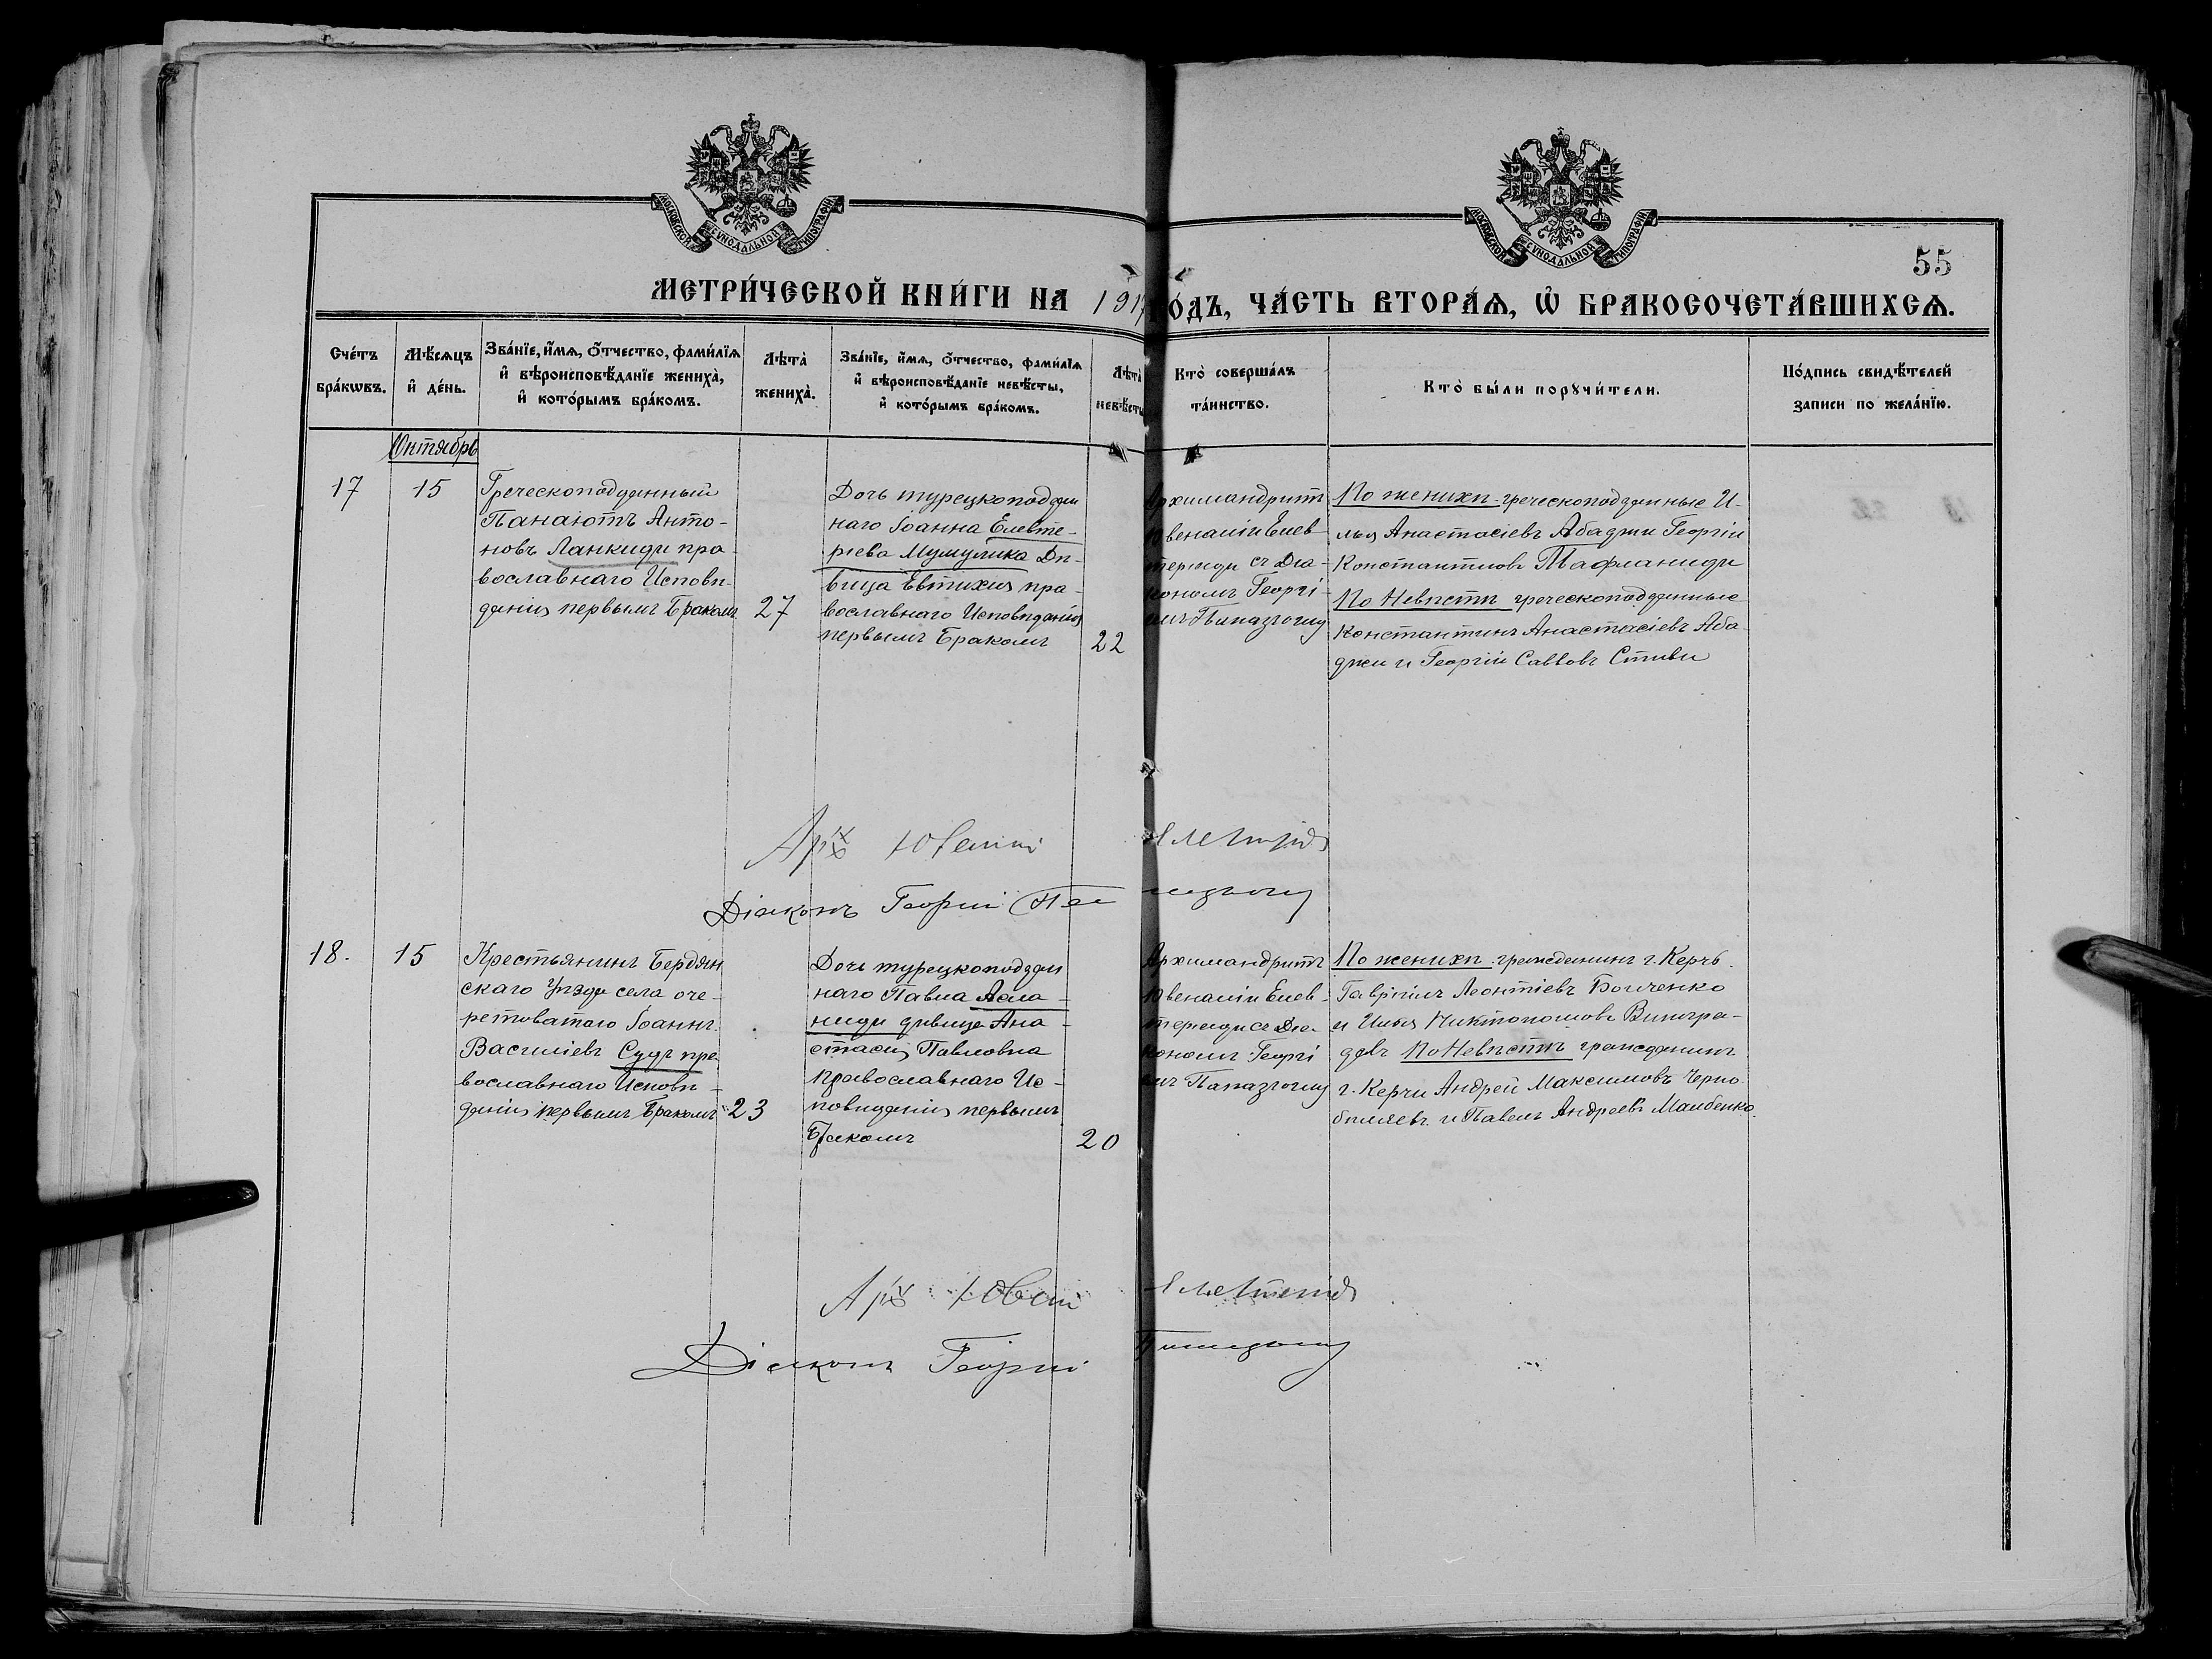 МОСКОВСКОЙ СѴНОДАЛЬНОЙ ТИПОГРАФІИ
МОСКОВСКОЙ СѴНОДАЛЬНОЙ ТИПОГРАФІИ
55
МЕТРИ́ЧЕСКОЙ КНИ́ГИ НА 1917 ГО́ДЪ, ЧА́СТЬ ВТОРА́Ѧ, Ѿ БРАКОСОЧЕТА́ВШИХСѦ.
Сче́тъ
бра́кѡвъ.
Мѣ́сѧцъ
и҆ де́нь.
Зва́нїе, и҆́мѧ, ѻ҆́тчество, фами́лїѧ
и҆ вѣроисповѣ́данїе жениха̀,
и҆ кото́рымъ бра́комъ.
Лѣта̀
жениха̀.
Зва́нїе, и҆́мѧ, ѻ҆́тчество, фами́лїѧ
и҆ вѣроисповѣ́данїе невѣ́сты,
и҆ кото́рымъ бра́комъ.
Лѣта̀
невѣ́сты
Кто̀ соверша́лъ
та́инство.
Кто̀ бы́ли порꙋчи́тели.
По́дпись свидѣ́телей
записи по жела́нїю.
Октябрь
17
15
Греческоподданный
Панаютъ Анто-
новъ Ланкиди пра-
вославнаго Исповѣ-
данія первымъ Бракомъ
27
Дочь турецкоподдан
наго Іоанна Елевте-
ріева Мумулика Дѣ-
вица Евтихия пра-
вославнаго Исповѣданія
первымъ Бракомъ
22
Архимандритъ
Ювеналій Елев-
териди съ Діа-
кономъ Георгі-
емъ Папазоглу
По женихѣ греческоподданные И-
лья Анастасіевъ Абаджи Георгій
Константиновъ Тафланиди
По Невѣстѣ греческоподданные
Константинъ Анастасіевъ Аба-
джи и Георгій Саввовъ Стиви
Діаконъ Георгій Папазоглу
18.
15
Крестьянинъ Бердян
скаго Уѣзда села Оче-
ретоватаго Іоаннъ
Васильевъ Судъ пра-
вославнаго Исповѣ-
данія первымъ Бракомъ
23
Дочь турецкоподдан
наго Павла Асла-
ниди дѣвица Ана-
стасія Павловна
православнаго Ис-
повѣданія первымъ
Бракомъ
20
Архимандритъ
Ювеналій Елев-
териди съ Діа-
кономъ Георгі
емъ Папазоглу
По женихѣ гражданинъ г. Керчь
Гавріилъ Леонтіевъ Бойченко
и Илья Виногра-
довъ По Невѣстѣ гражданинъ
г. Керчи Андрей Максимовъ Черно-
и Павелъ Андреевъ
Діаконъ Георгій Папазоглу